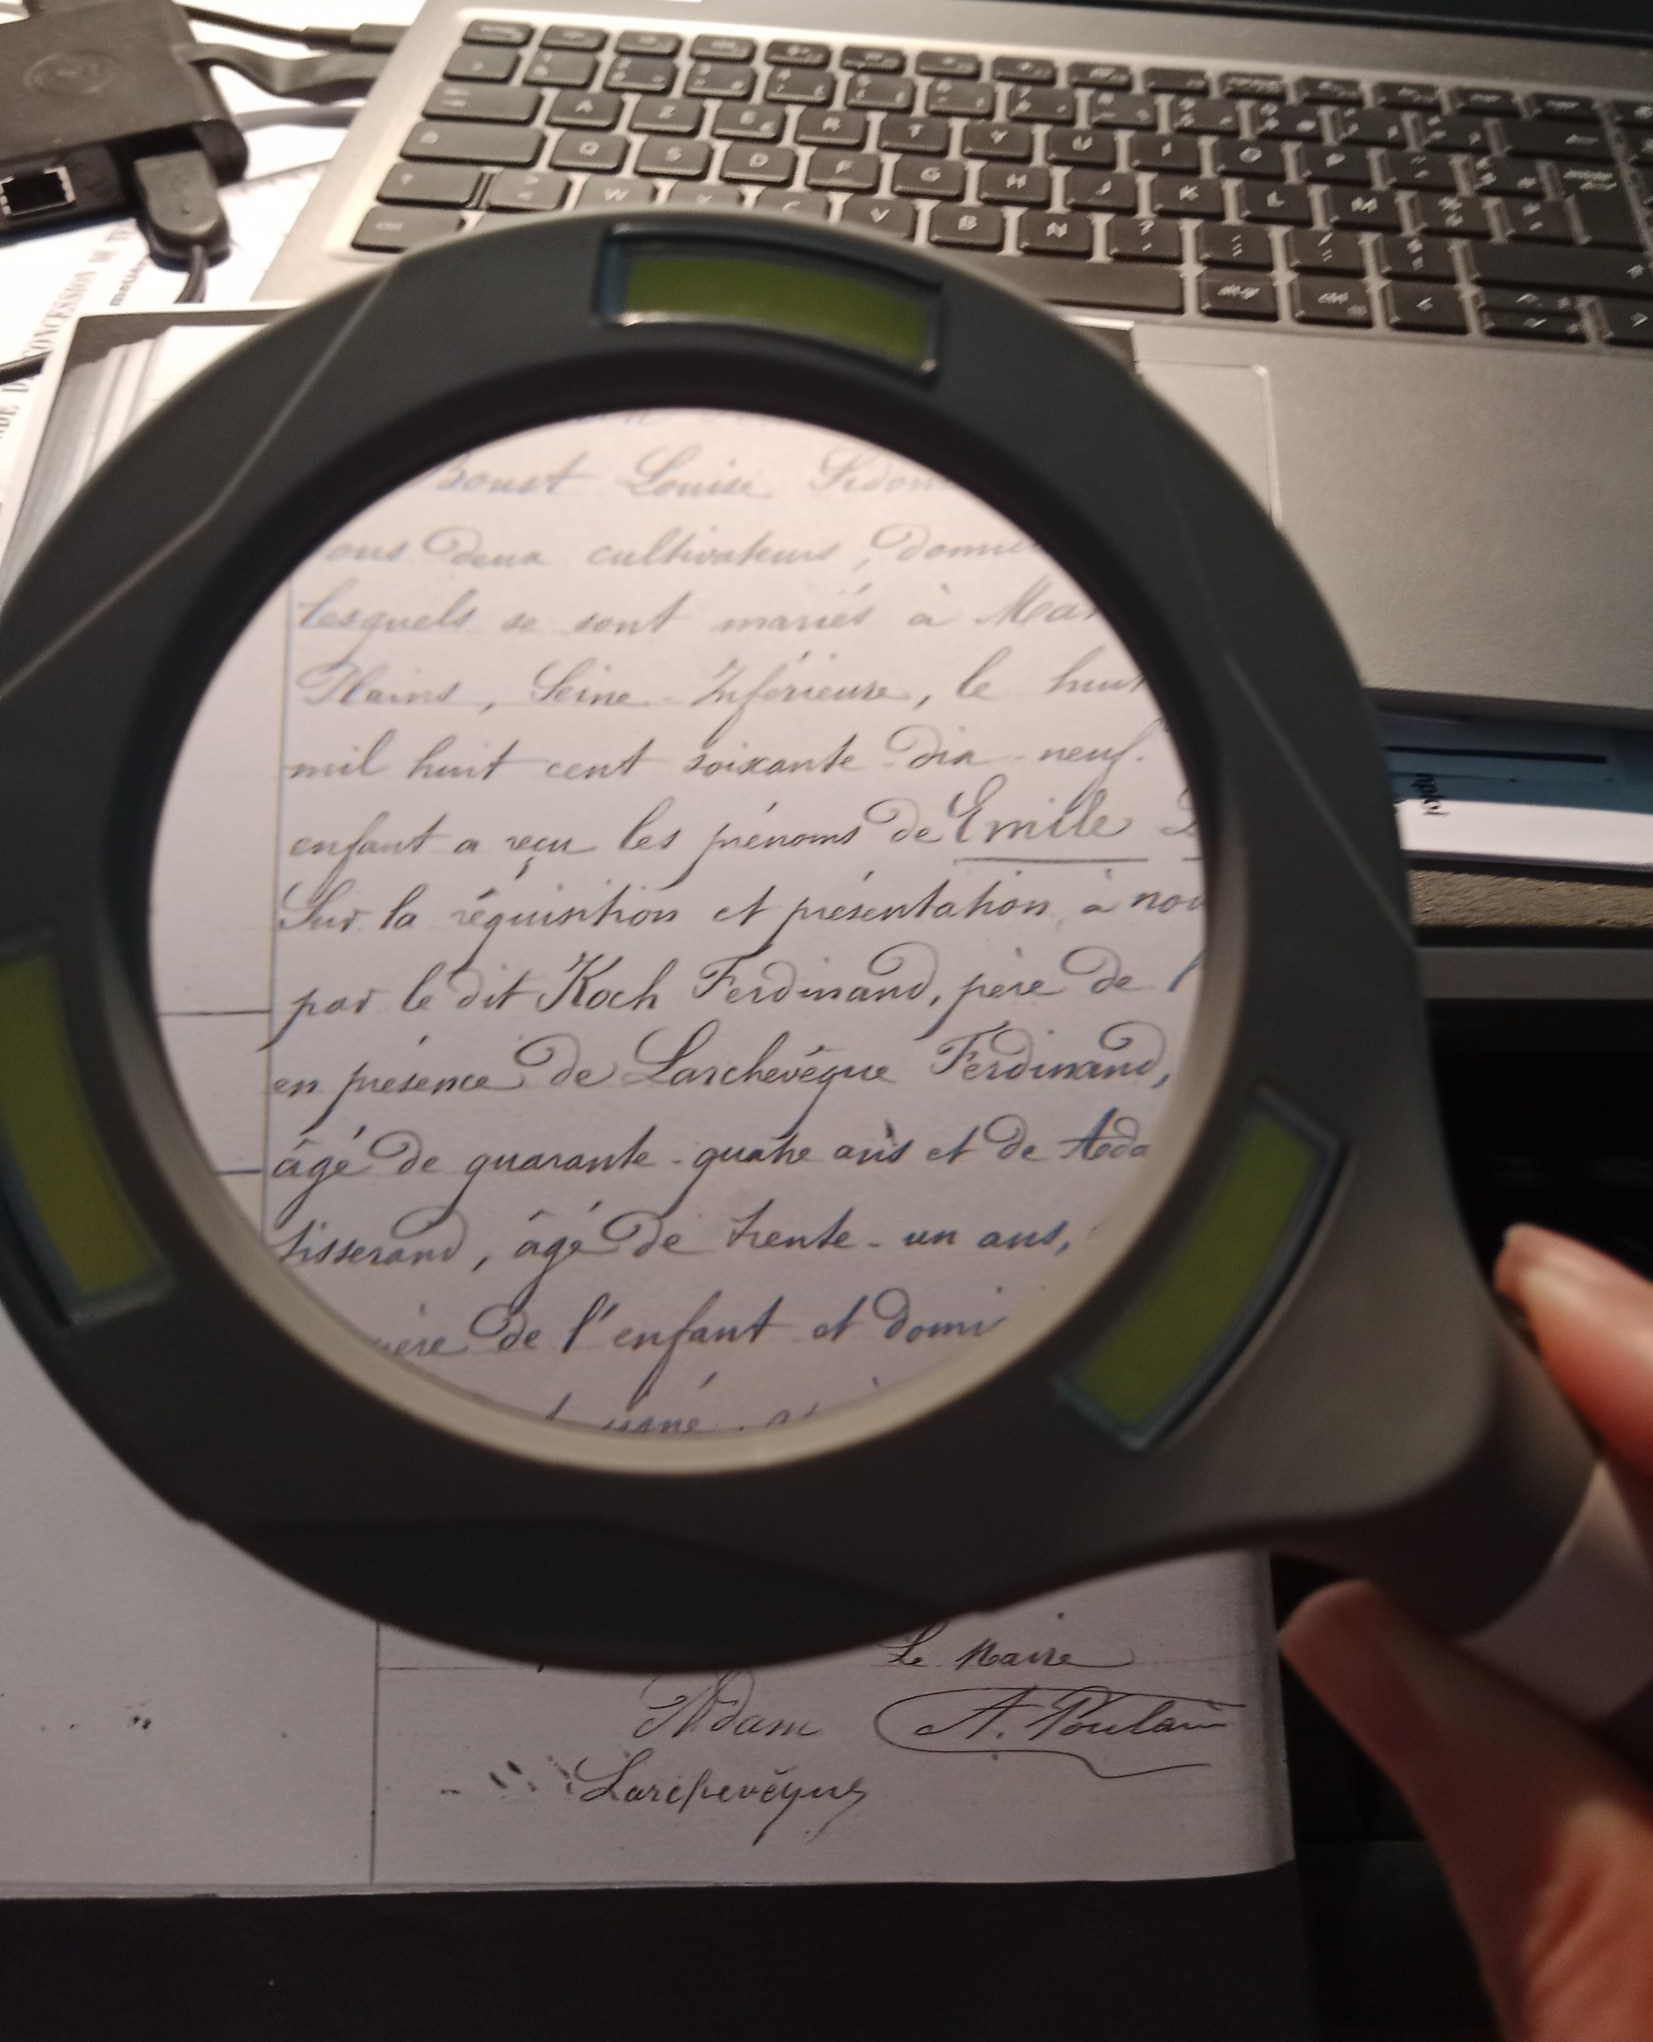 A Z E R T Y U I O P
Q S D F G H J K L M
W X C V B N
CONCESSION DE
Boust Louise Sidon
ous deux cultivateurs, domi
lesquels se sont mariés à Man
Plains, Seine-Inférieure, le huit
mil huit cent soixante-dix-neuf.
enfant a reçu les prénoms de Emile
Sur la réquisition et présentation à nou
par le dit Koch Ferdinand, père de l
en présence de Larchevêque Ferdinand,
âgé de quarante-quatre ans et de Ada
tisserand, âgé de trente-un ans,
père de l'enfant et domi
signé
Le Maire
Adam A. Poulain
Larchevêque